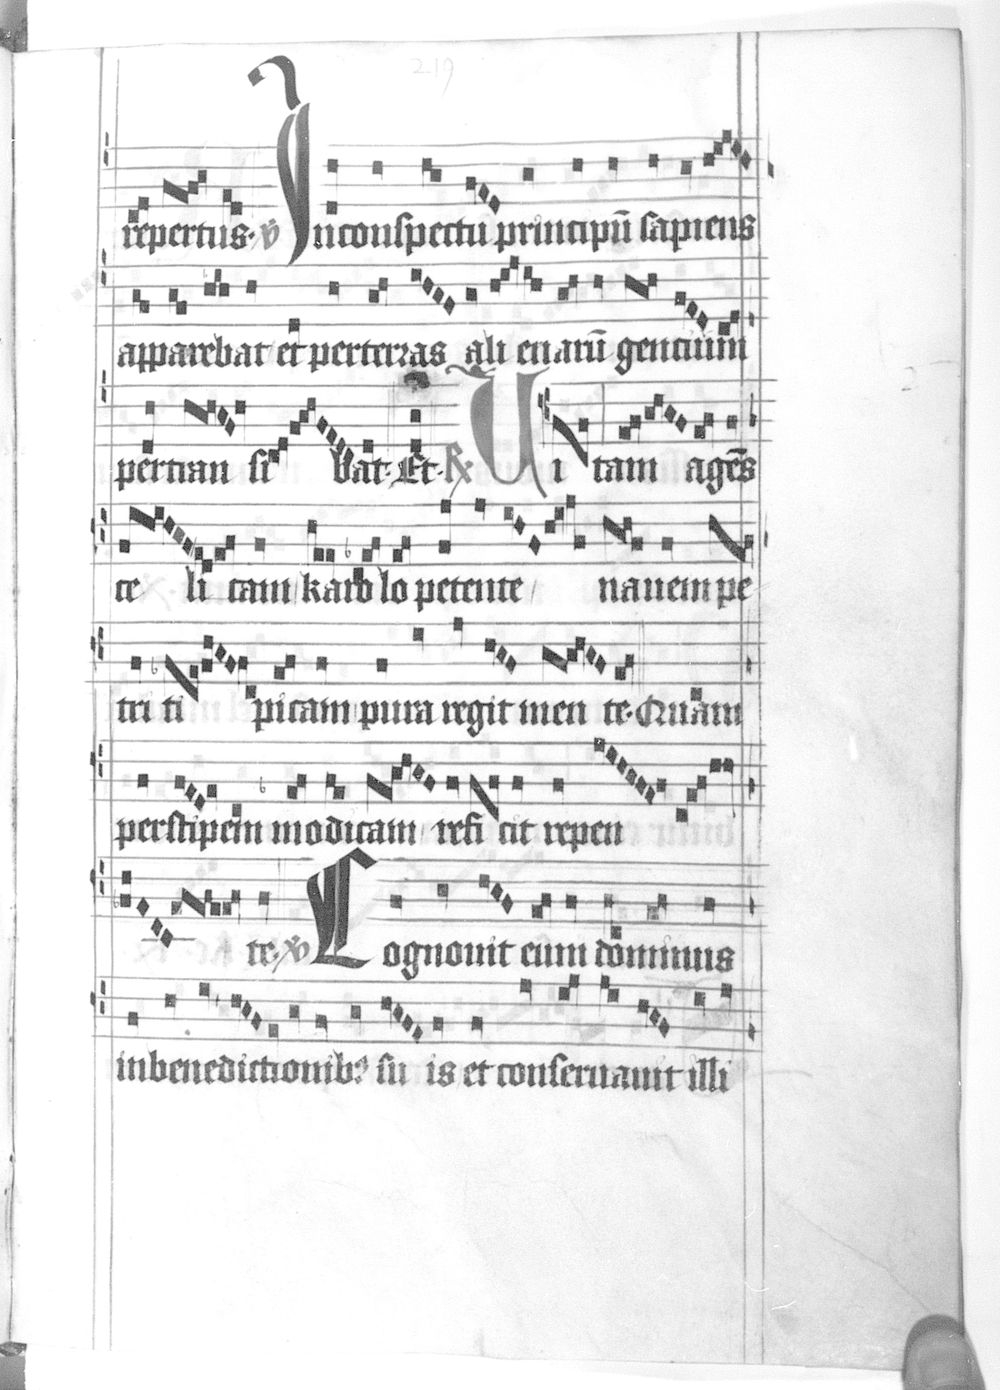 219
repertus. v̄ In conspectu principū sapiens
apparebat et per terras ali enarū gentium
pertran si bat. Et. R̄ Ui tam agēs
ce li cam karo lo petente nauem pe
tri ti picam pura regit men te. Quam
per stipem modicam refi cit repen
te. v̄ Cognouit eum dominus
in benedictionib9 su is et conseruauit illi